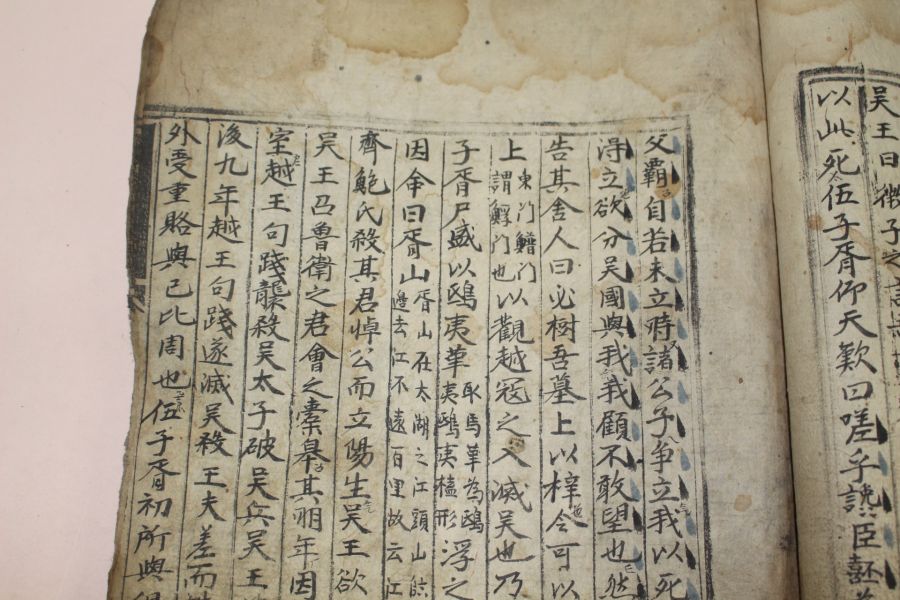 吴王曰
以此死伍子胥仰天歎曰嗟乎讒臣嚭
父霸自若未立時諸公子争立我以死
淂立欲分吴國與我我顧不敢望也然
告其舍人曰必樹吾墓上以梓令可以
上東門鱛門謂鱘門也以觀越寇之入滅吴也乃
子胥尸盛以鴟夷革取馬革為鴟夷鴟夷榼形浮之
因命曰胥山胥山在太湖之江頭山皖邊去江不遠百里故云江
齊鮑氏殺其君悼公而立陽生吴王欲
吴王召魯衛之君會之橐皋其明年因
室越王句踐襲殺吴太子破吴兵吴王
後九年越王句踐遂滅吴殺王夫差而
外受重賂與己比周也伍子胥初所與